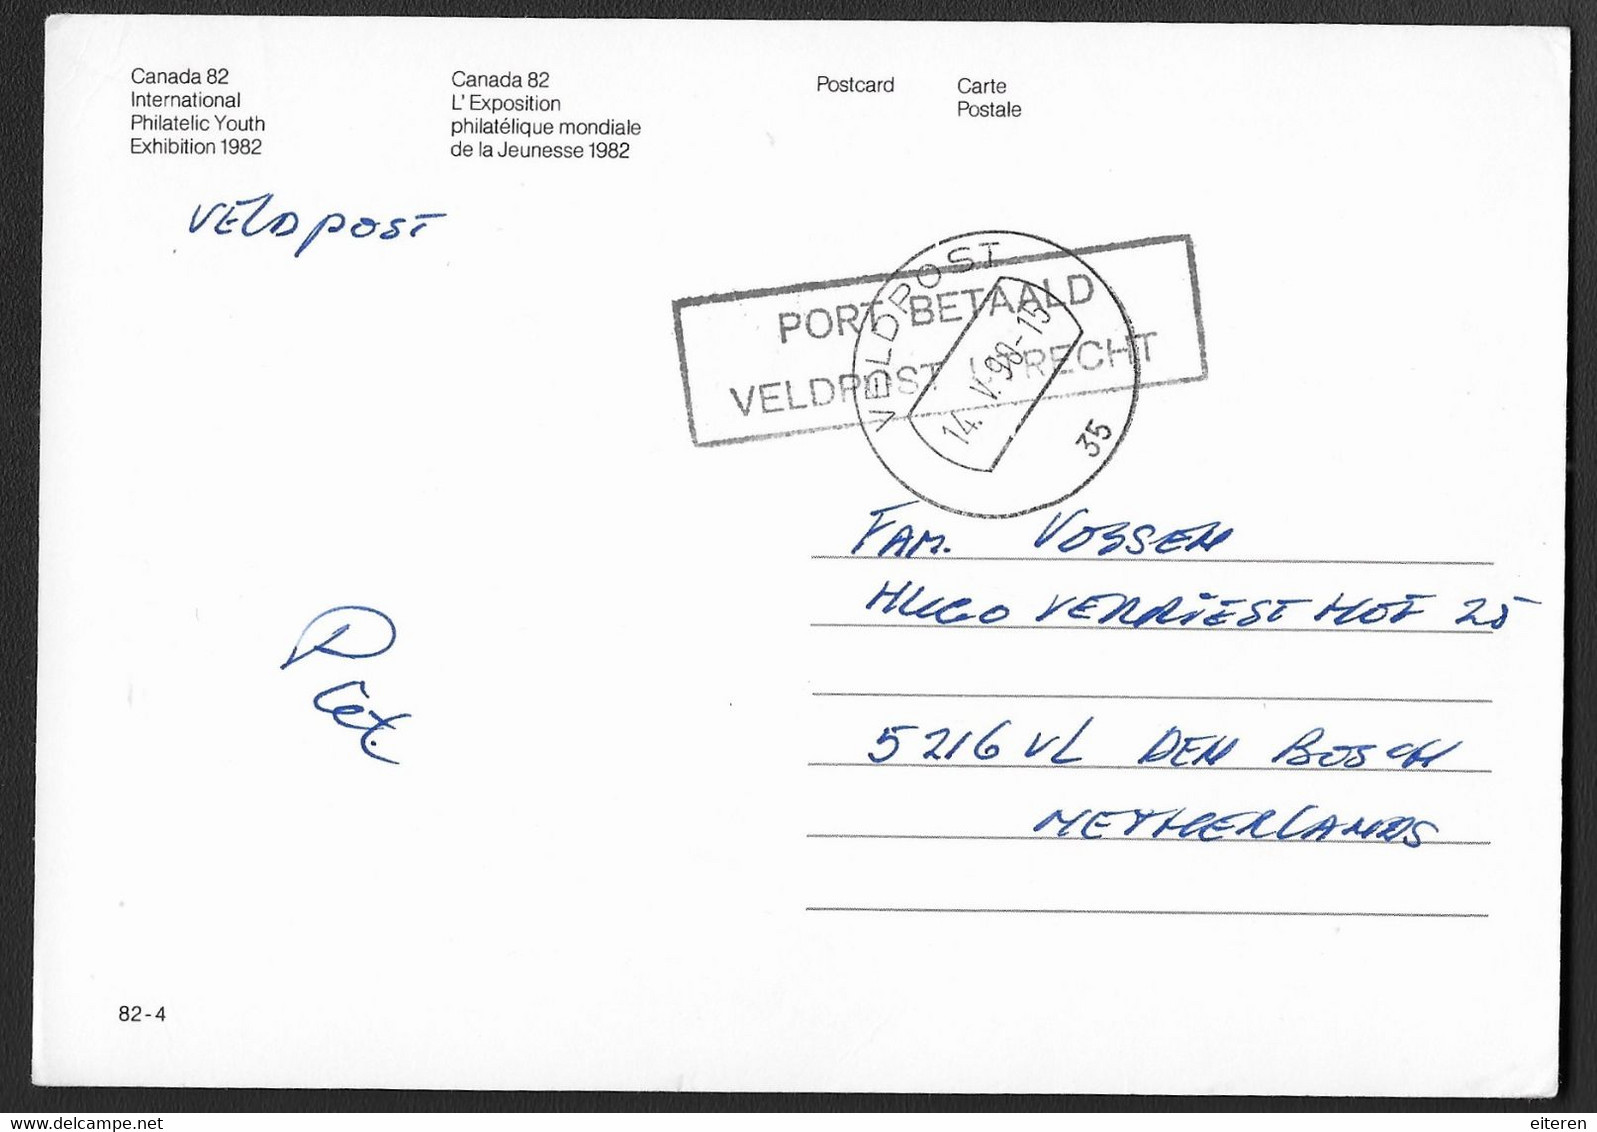 Canada 82
International
Philatelic Youth
Exhibition 1982
Canada 82
L'Exposition
philatélique mondiale
de la Jeunesse 1982
Postcard
Carte
Postale
VELDPOST
PORT BETAALD
VELDPOST UTRECHT
VELDPOST
14. V. 98-15
35
FAM. VOSSEN
HUGO VERRIEST HOF 25
5216 VL DEN BOSCH
NETHERLANDS
Piet.
82-4
eiteren